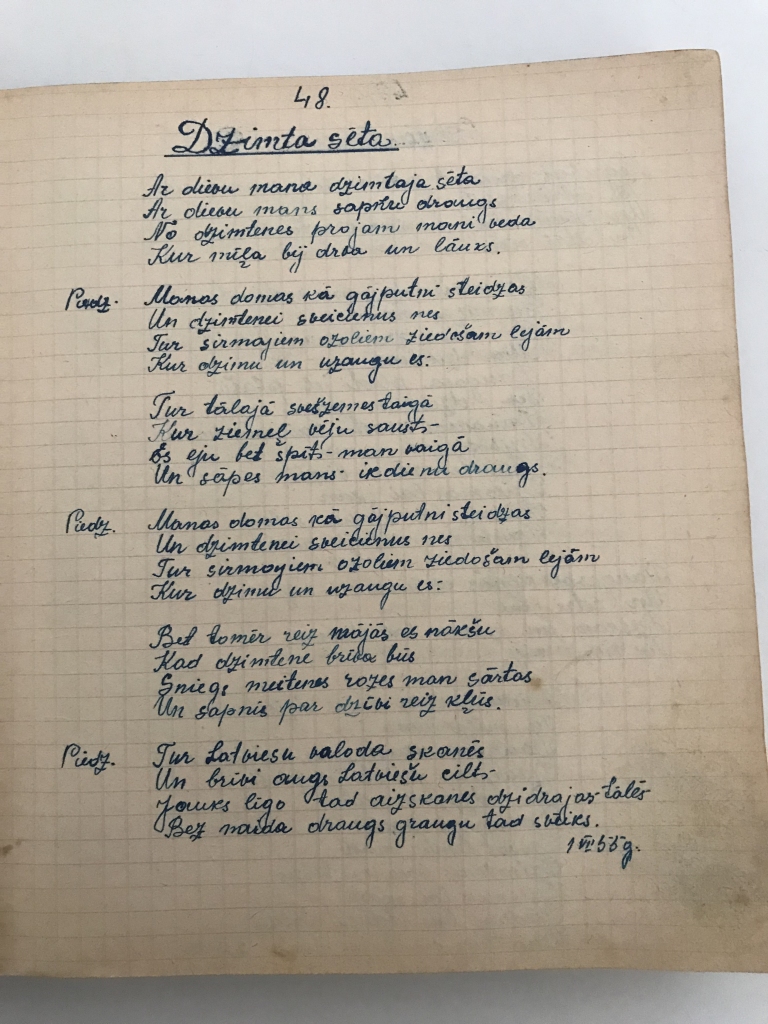 48.
Dzimta sēta.
Ar dievu mana dzimtaja sēta
Ar dievu mans sapņu draugs
No dzimtenes projam mani veda
Kur mīļa bij drva un lauks.
Piedz. Manas domas kā gājputni steidzas
Un dzimtenei sveicienus nes
Tur sirmajiem ozoliem ziedošam lejām
Kur dzimu un uzaugu es:
Tur tālajā svešzemes taigā
Kur ziemeļ vēju sausts-
Es eju bet špīts- man vaigā
Un sāpes mans- ikdiena draugs.
Piedz. Manas domas kā gājputni steidzas
Un dzimtenei sveicienus nes
Tur sirmajiem ozoliem ziedošam lejām
Kur dzimu un uzaugu es:
Bet tomēr reiz mājās es nākšu
Kad dzimtene brīva būs
Sniegs meitenes rozes man sārtas
Un sapnis par dzīvi reiz kļūs.
Piedz. Tur Latviesu valoda skanēs
Un brīvi augs Latviešu cilts-
Jauks līgo tad aizskanes dzidrajas tālēs
Bez naida draugs graugu tad sveiks.
1 VII 55g.